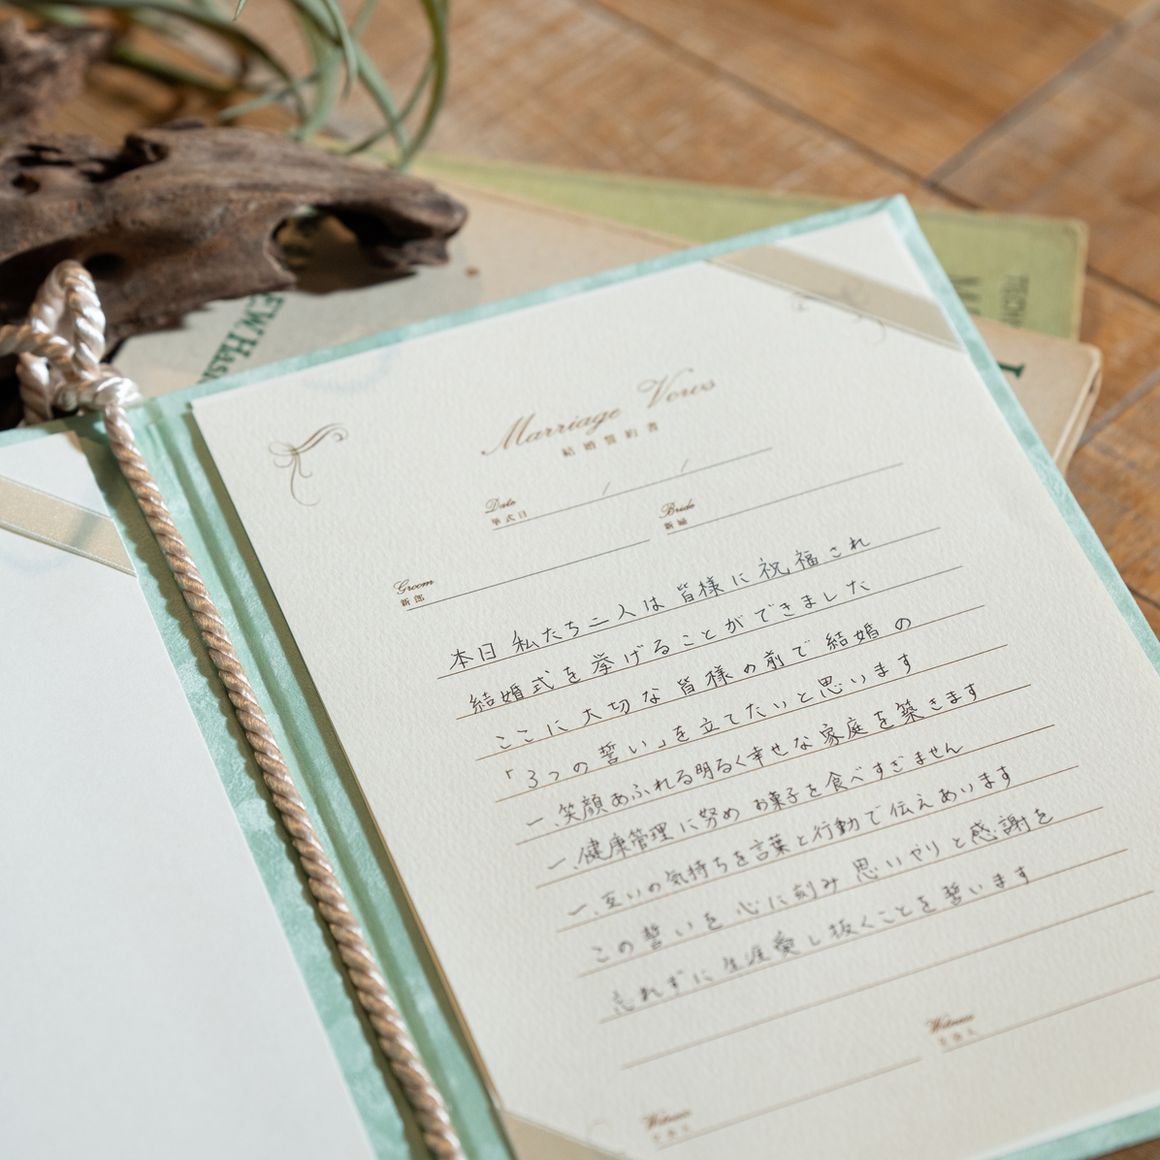 EW Has
TECH
Marriage Vows
結婚誓約書
Date
挙式日
/ /
Bride
新婦
Groom
新郎
本日私たち二人は皆様に祝福され
結婚式を挙げることができました
ここに大切な皆様の前で結婚の
「3つの誓い」を立てたいと思います
一、笑顔あふれる明るく幸せな家庭を築きます
一、健康管理に努めお菓子を食べすぎません
一、互いの気持ちを言葉と行動で伝えあいます
この誓いを心に刻み思いやりと感謝を
忘れずに生涯愛し抜くことを誓います
Witness
立会人
Witness
立会人